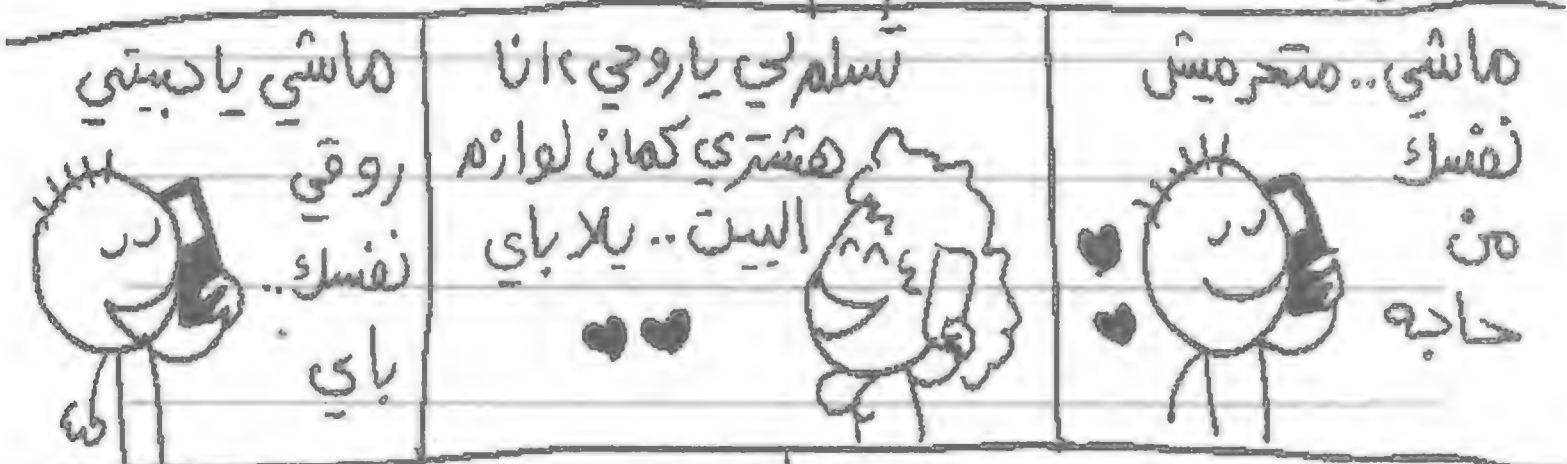 ماشي.. متحرميش
نفسك
من
حاجه
تسلملي ياروحي، انا
هشتري كمان لوازم
البيت.. يلا باي
ماشي يا حبيبتي
روقي
نفسك..
باي